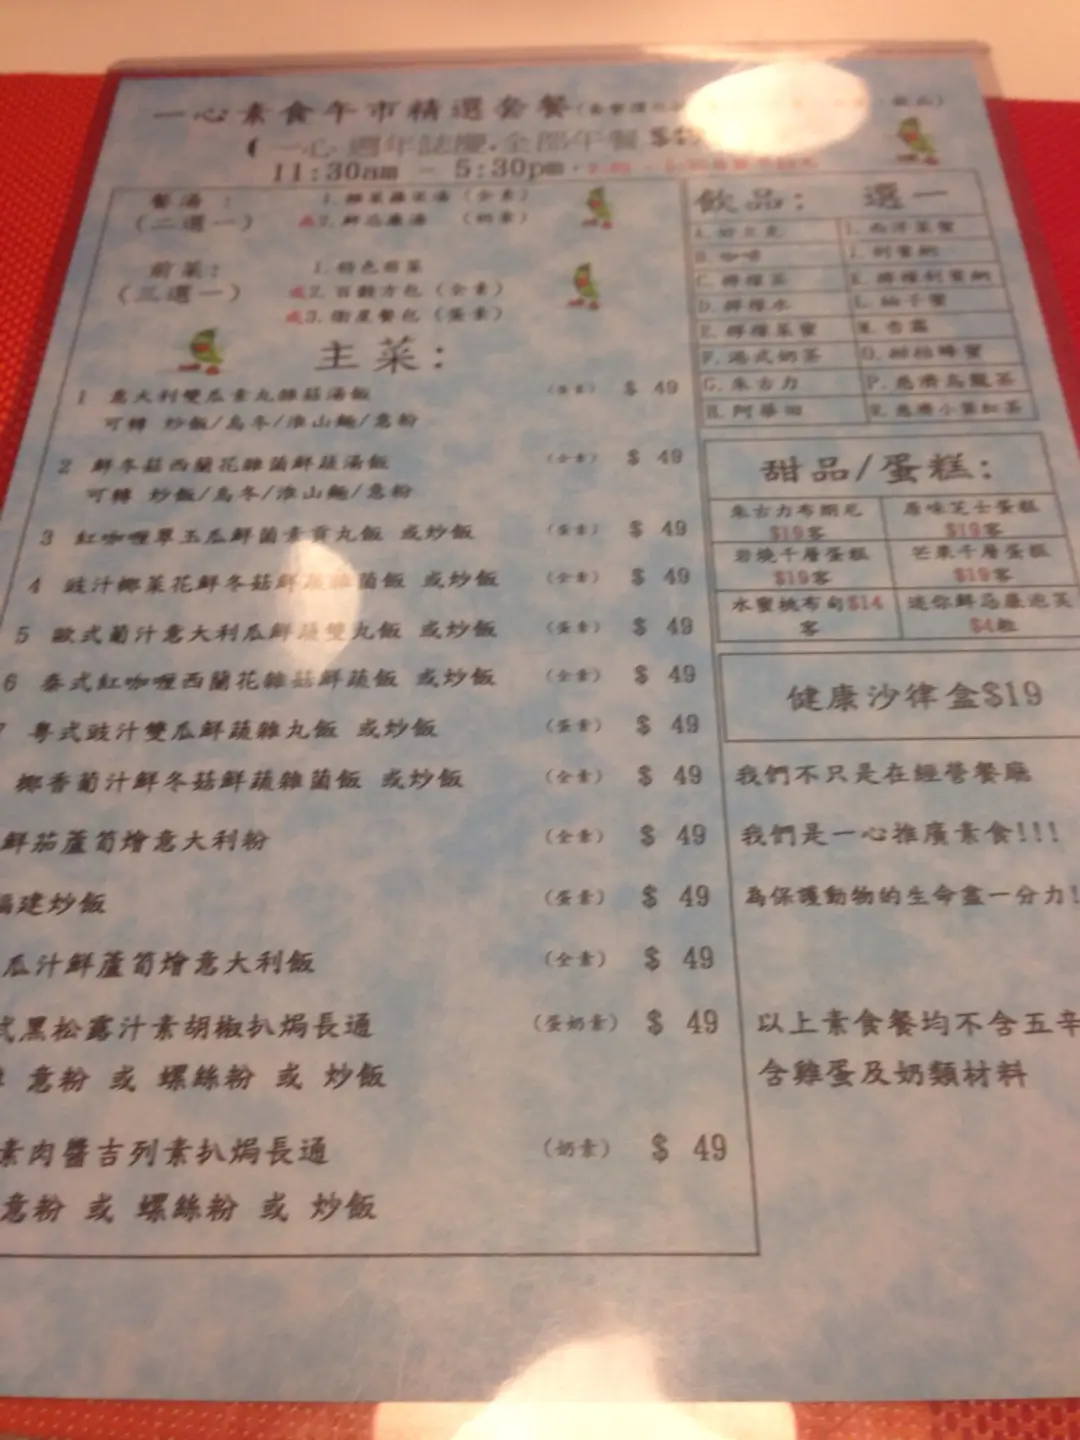 一心素食午市精選套餐
一心 週年誌慶,全部午餐
11:30am - 5:30pm
餐湯:
(二選一)
(全素)
或2. 鮮忌廉湯 (奶素)
前菜:
(三選一)
1. 特色前菜
或2. 百穀方包 (全素)
或3. 衛星餐包 (蛋素)
主菜:
1 意大利雙瓜素丸雜菇湯飯 (蛋素) $ 49
可轉 炒飯/烏冬/淮山麵/意粉
2 鮮冬菇西蘭花雜菌鮮蔬湯飯 (全素) $ 49
可轉 炒飯/烏冬/淮山麵/意粉
3 紅咖喱翠玉瓜鮮菌素貢丸飯 或炒飯 (蛋素) $ 49
4 豉汁椰菜花鮮冬菇鮮蔬雜菌飯 或炒飯 (全素) $ 49
5 歐式葡汁意大利瓜鮮蔬雙丸飯 或炒飯 (蛋素) $ 49
6 泰式紅咖喱西蘭花雜菇鮮蔬飯 或炒飯 (全素) $ 49
7 粵式豉汁雙瓜鮮蔬雜丸飯 或炒飯 (蛋素) $ 49
椰香葡汁鮮冬菇鮮蔬雜菌飯 或炒飯 (全素) $ 49
鮮茄蘆筍燴意大利粉 (全素) $ 49
福建炒飯 (蛋素) $ 49
瓜汁鮮蘆筍燴意大利飯 (全素) $ 49
式黑松露汁素胡椒扒焗長通 (蛋奶素) $ 49
意粉 或 螺絲粉 或 炒飯
素肉醬吉列素扒焗長通 (奶素) $ 49
意粉 或 螺絲粉 或 炒飯
飲品: 選一
A. 好立克
B. 咖啡
C. 檸檬茶
D. 檸檬水
E. 檸檬菜蜜
F. 港式奶茶
G. 朱古力
H. 阿華田
I. 西洋菜蜜
J. 利賓納
K. 檸檬利賓納
L. 柚子蜜
M. 杏霜
O. 柑桔蜂蜜
P. 慈濟烏龍茶
R. 慈濟小葉紅茶
甜品/蛋糕:
朱古力布朗尼 $19客
原味芝士蛋糕 $19客
岩燒千層蛋糕 $19客
芒果千層蛋糕 $19客
水蜜桃布甸$14客
迷你鮮忌廉泡芙 $4粒
健康沙律盒$19
我們不只是在經營餐廳
我們是一心推廣素食!!!
為保護動物的生命盡一分力!
以上素食餐均不含五辛
含雞蛋及奶類材料